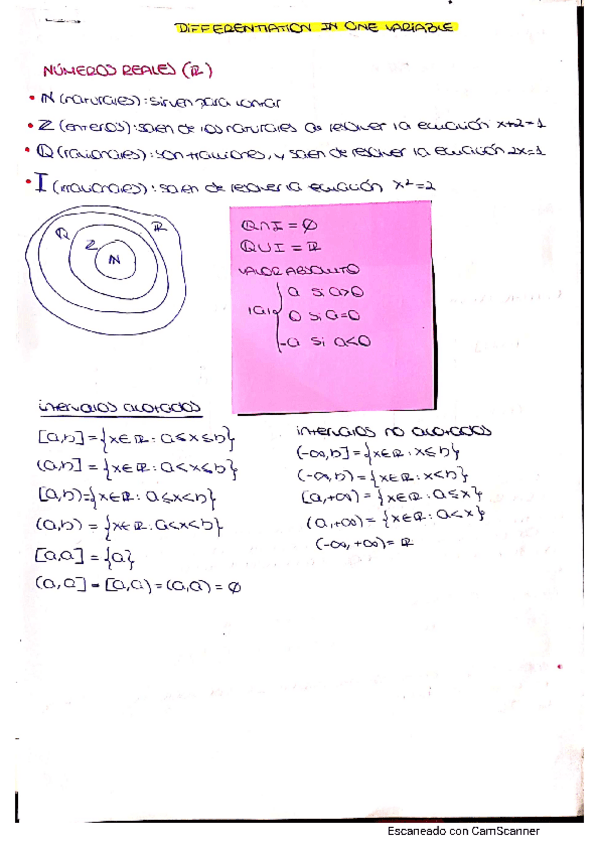 DIFFERENTIATION IN ONE VARIABLE
NÚMEROS REALES (ℝ)
• ℕ (naturales): sirven para contar
• ℤ (enteros): salen de los naturales de resolver la ecuación x+2=1
• ℚ (racionales): son fracciones, y salen de resolver la ecuación 2x=1
• I (irracionales): salen de resolver la ecuación x²=2
ℝ
ℚ
ℤ
ℕ
ℚ∩I = ∅
ℚ∪I = ℝ
VALOR ABSOLUTO
a si a>0
|a| { 0 si a=0
-a si a<0
intervalos acotados
[a,b] = {x∈ℝ: a≤x≤b}
(a,b] = {x∈ℝ: a<x≤b}
[a,b) = {x∈ℝ: a≤x<b}
(a,b) = {x∈ℝ: a<x<b}
[a,a] = {a}
(a,a] = [a,a) = (a,a) = ∅
intervalos no acotados
(-∞,b] = {x∈ℝ: x≤b}
(-∞,b) = {x∈ℝ: x<b}
[a,+∞) = {x∈ℝ: a≤x}
(a,+∞) = {x∈ℝ: a<x}
(-∞,+∞) = ℝ
Escaneado con CamScanner